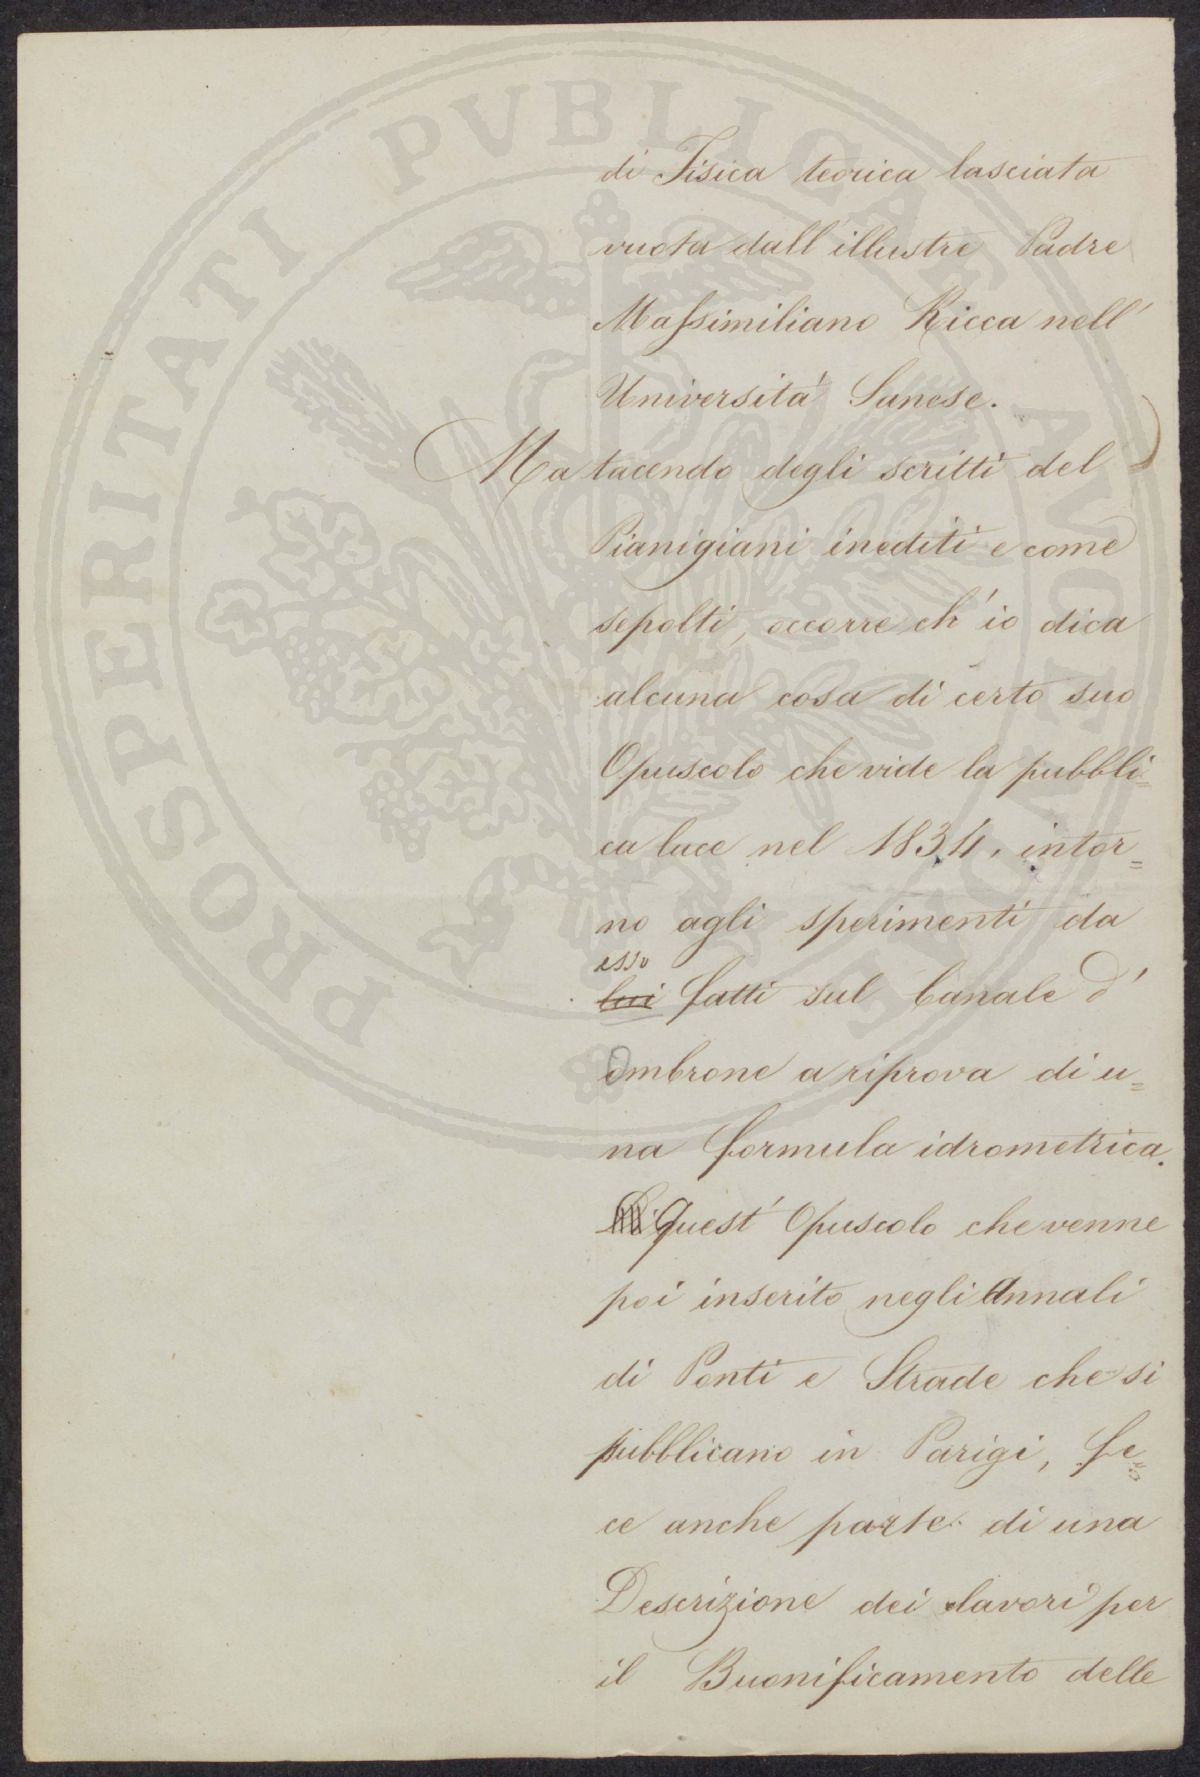 di Fisica teorica lasciata
vuota dall'illustre Padre
Massimiliano Ricca nell'
Università Sanese.
Ma tacendo degli scritti del
Pianigiani inediti e come
sepolti, occorre ch'io dica
alcuna cosa di certo suo
Opuscolo che vide la pubbli=
ca luce nel 1834, intor=
no agli sperimenti da
esso
lui fatti sul Canale d'
Ombrone a riprova di u=
na formula idrometrica.
Quest'Opuscolo che venne
poi inserito negli Annali
di Ponti e Strade che si
pubblicano in Parigi, fe=
ce anche parte di una
Descrizione dei lavori per
il Buonificamento delle
PROSPERITATI PVBLICAE AVGENDAE